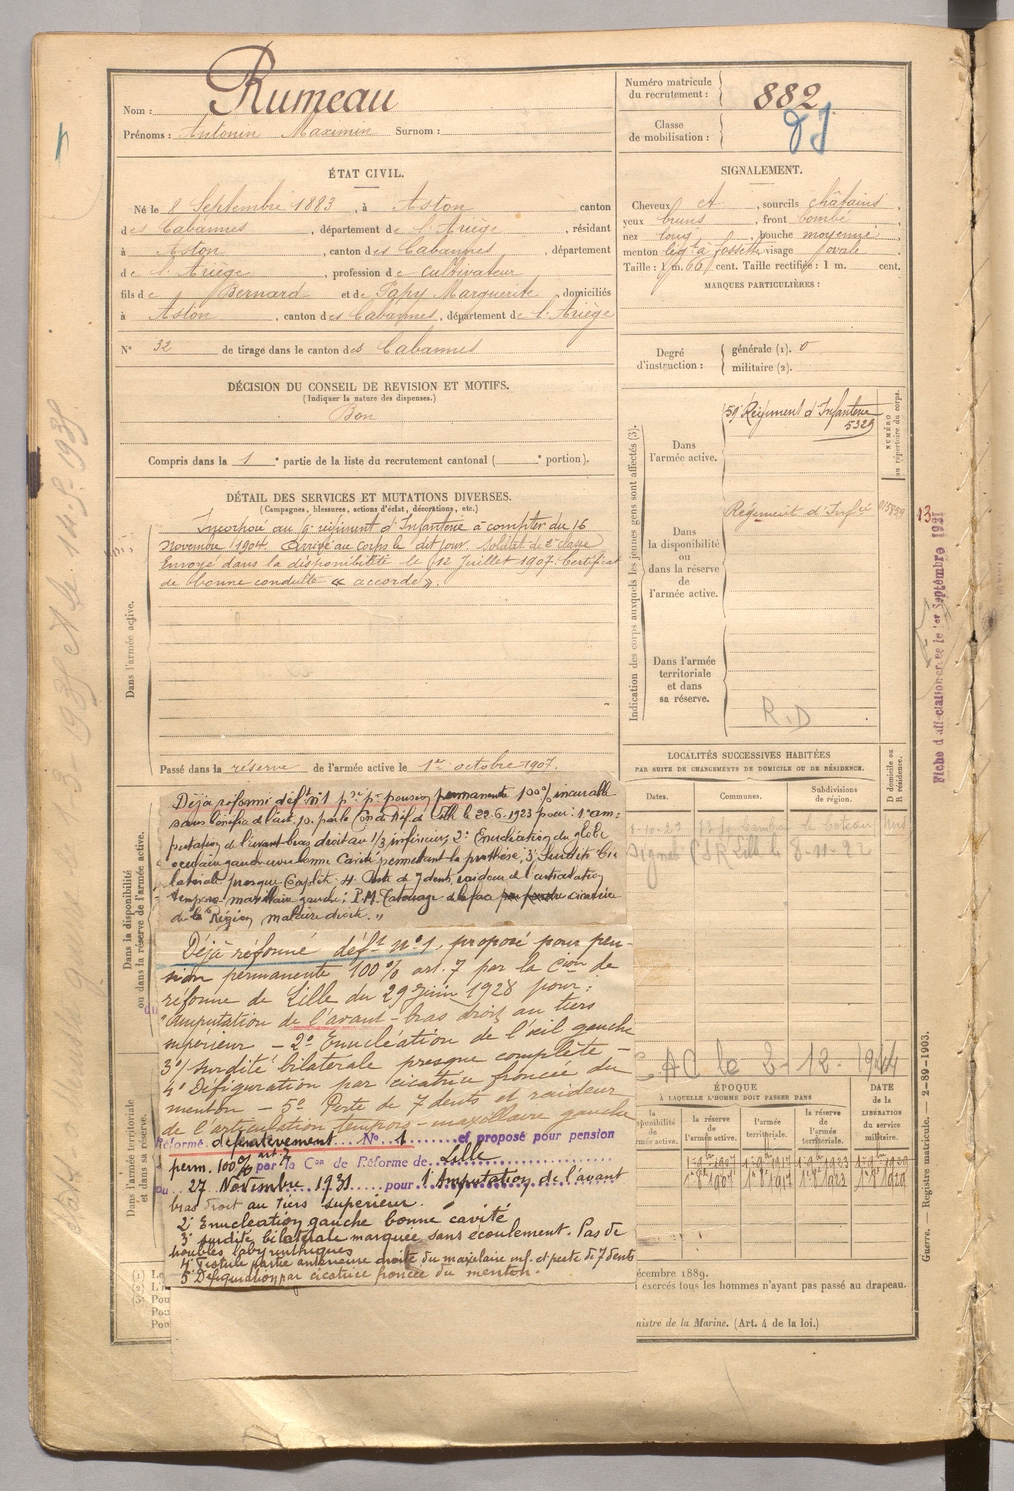 Nom : Rumeau
Prénoms : Antonin Maximin Surnom :
Numéro matricule du recrutement : 882
Classe de mobilisation :
ÉTAT CIVIL.
Né le 8 Septembre 1883, à Aston canton
des Cabannes, département de l'Ariège, résidant
à Aston, canton des Cabannes, département
de l'Ariège, profession de cultivateur
fils de Bernard et de Papy Marguerite, domiciliés
à Aston, canton des Cabannes, département de l'Ariège
N° 32 de tirage dans le canton des Cabannes
SIGNALEMENT.
Cheveux et, sourcils châtains
yeux bruns, front bombé
nez long, bouche moyenne
menton à fossette visage ovale
Taille : 1 m. 66 cent. Taille rectifiée : 1 m. cent.
MARQUES PARTICULIÈRES :
Degré d'instruction : générale (1). 0
militaire (2).
DÉCISION DU CONSEIL DE REVISION ET MOTIFS.
(Indiquer la nature des dispenses.)
Bon
Compris dans la 1e partie de la liste du recrutement cantonal ( e portion).
DÉTAIL DES SERVICES ET MUTATIONS DIVERSES.
(Campagnes, blessures, actions d'éclat, décorations, etc.)
Dans l'armée active.
Incorporé au 9e régiment d'Infanterie à compter du 16
Novembre 1904. Arrivé au corps le dit jour. Soldat de 2e classe
Envoyé dans la disponibilité le 12 Juillet 1907. Certificat
de bonne conduite « accordé ».
Passé dans la réserve de l'armée active le 1er octobre 1907.
Indication des corps auxquels les jeunes gens sont affectés (3).
NUMÉRO au répertoire du corps.
Dans l'armée active.
59e Régiment d'Infanterie
5329
Dans la disponibilité ou dans la réserve de l'armée active.
Régiment d'Infie
Dans l'armée territoriale et dans sa réserve.
R.D
Fiche d'affectation créée le 1er Septembre 1921
LOCALITÉS SUCCESSIVES HABITÉES
PAR SUITE DE CHANGEMENTS DE DOMICILE OU DE RÉSIDENCE.
Dates. Communes. Subdivisions de région. D domicile ou R résidence.
Dans la disponibilité ou dans la réserve de l'armée active.
Déjà réformé déf. n°1 pr pr pension permanente 100% incurable
sans bénéfice de l'art. 10. par la Con de Réf. de Lille le 22.6.1923 pour : 1° am-
putation de l'avant bras droit au 1/3 inférieur, 2° Enucléation du globe
oculaire gauche bonne cavité permettant la prothèse, 3° Surdité bi
latérale presque Complète, 4. Perte de 7 dents, raideur de l'articulation
temporo maxillaire gauche ; P.M. Tatouage de la face cicatrice
de la Région malaire droite. "
Déjà réformé déft n°1, proposé pour pen-
sion permanente 100% art. 7 par la Cion de
réforme de Lille du 29 Juin 1928 pour :
1° Amputation de l'avant-bras droit au tiers
supérieur - 2° Enucléation de l'œil gauche
3° Surdité bilatérale presque complète -
4° Défiguration par cicatrice froncée du
menton - 5° Perte de 7 dents et raideur
de l'articulation temporo-maxillaire gauche
Réformé définitivement N° 1 et proposé pour pension
perm. 100% art. 7 par la Con de Réforme de Lille
du 27 Novembre 1931 pour 1° Amputation de l'avant
bras droit au tiers supérieur.
2° Enucléation gauche bonne cavité
3° surdité bilatérale marquée sans écoulement. Pas de
troubles labyrinthiques
4° Fistule partie antérieure droite du maxilaire inf. et perte de 7 dents
5° Défiguration par cicatrice froncée du menton.
Dans l'armée territoriale et dans sa réserve.
AC le 2-12-1944
ÉPOQUE
À LAQUELLE L'HOMME DOIT PASSER DANS
la réserve de l'armée active. l'armée territoriale. la réserve de l'armée territoriale.
DATE de la LIBÉRATION du service militaire.
décembre 1889.
exercés tous les hommes n'ayant pas passé au drapeau.
nistre de la Marine. (Art. 4 de la loi.)
Guerre. — Registre matricule. — 2-89-1903.